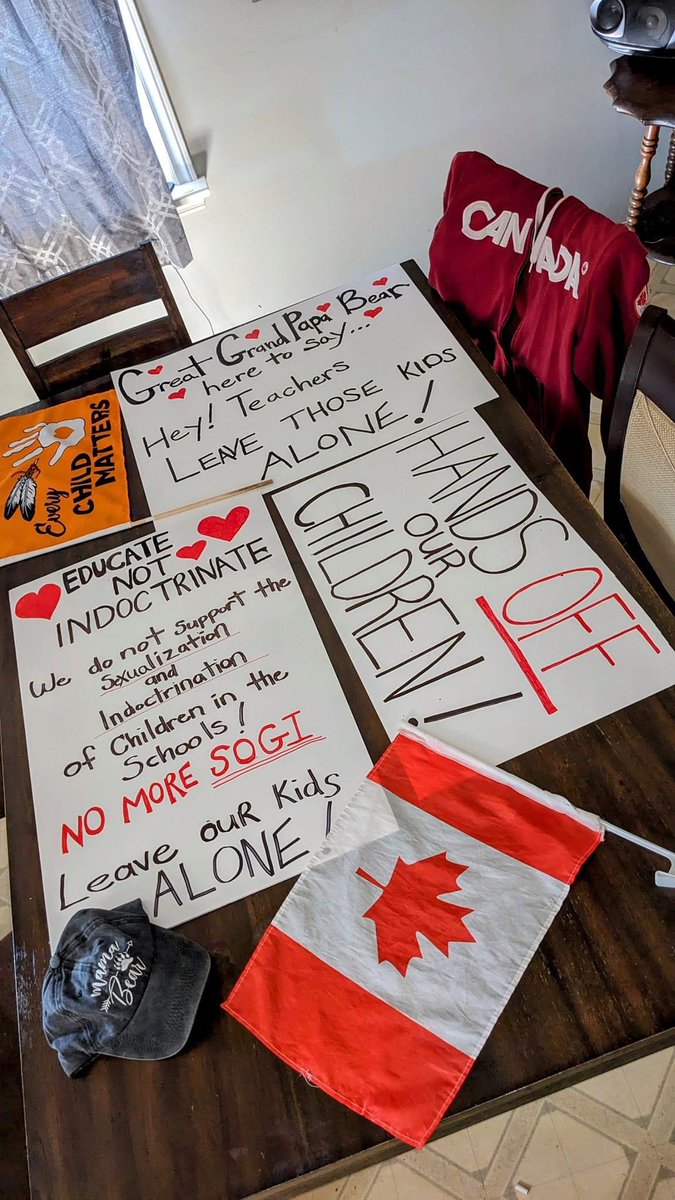 CANADA
Great GrandPapa Bear
here to say...
Hey! Teachers
LEAVE THOSE KIDS
ALONE!
Every
CHILD
MATTERS
HANDS OFF
OUR
CHILDREN!
EDUCATE
NOT
INDOCTRINATE
We do not support the
Sexualization
and
Indoctrination
of Children in the
Schools!
NO MORE SOGI
Leave our Kids
ALONE!
Mama
Bear